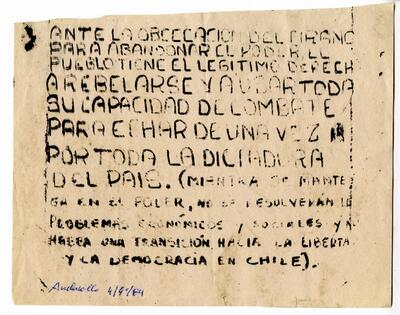 ANTE LA OBCECACION DEL TIRANO
PARA ABANDONAR EL PODER EL
PUEBLO TIENE EL LEGITIMO DERECH
A REBELARSE Y A USAR TODA
SU CAPACIDAD DE COMBATE
PARA ECHAR DE UNA VEZ
POR TODA LA DICTADURA
DEL PAIS. (MIENTRA SE MANTE
GA EN EL PODER, NO SE RESOLVERAN
PROBLEMAS ECONÓMICOS Y SOCIALES Y
HABRA UNA TRANSICIÓN HACIA LA LIBERTA
Y LA DEMOCRACIA EN CHILE).
Andacollo 4/9/84